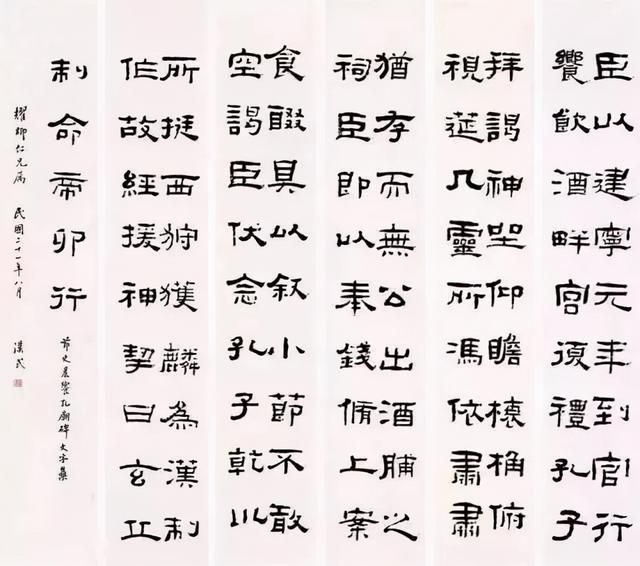 臣以建寧元年到官行
饗飲酒畔宮復禮孔子
拜謁神坐仰瞻榱桷俯
視筵几靈所馮依肅肅
猶存而無公出酒脯之
祠臣即以奉錢脩上案
食醊具以叙小節不敢
空謁臣伏念孔子乾巛
所挺西狩獲麟為漢制
作故經援神契曰玄丘
制命帝卯行
節史晨饗孔廟碑文字集
耀卿仁兄屬 民國二十一年八月 漢民